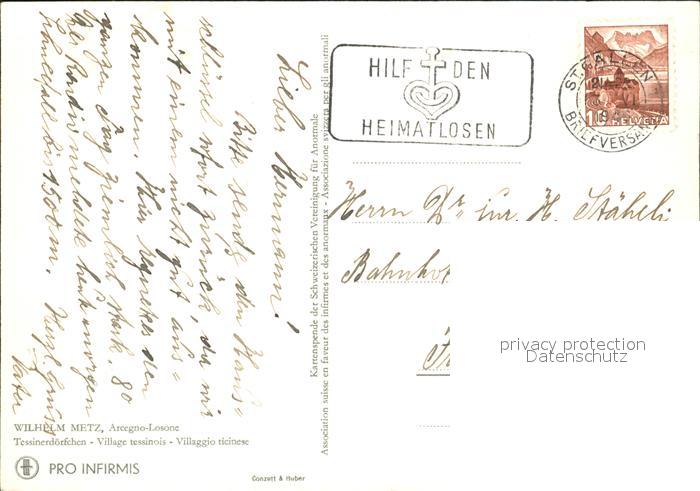 Lieber Hermann!
Bitte sende den Haus=
schlüssel sofort zurück, da wir
mit einem nicht gut aus=
kommen. Hier regnet es den
ganzen Tag ziemlich stark. 80
Der
heute morgen
bis 1500 m. Herzl. Gruss
Vater
HILF DEN
HEIMATLOSEN
ST. GALLEN
BRIEFVERSAND
10 HELVETIA
Herrn Dr. iur. H. Stäheli
Bahnhof
privacy protection
Datenschutz
Kartenspende der Schweizerischen Vereinigung für Anormale
Association suisse en faveur des infirmes et des anormaux - Associazione svizzera per gli anormali
WILHELM METZ, Arcegno-Losone
Tessinerdörfchen - Village tessinois - Villaggio ticinese
PRO INFIRMIS
Conzett & Huber